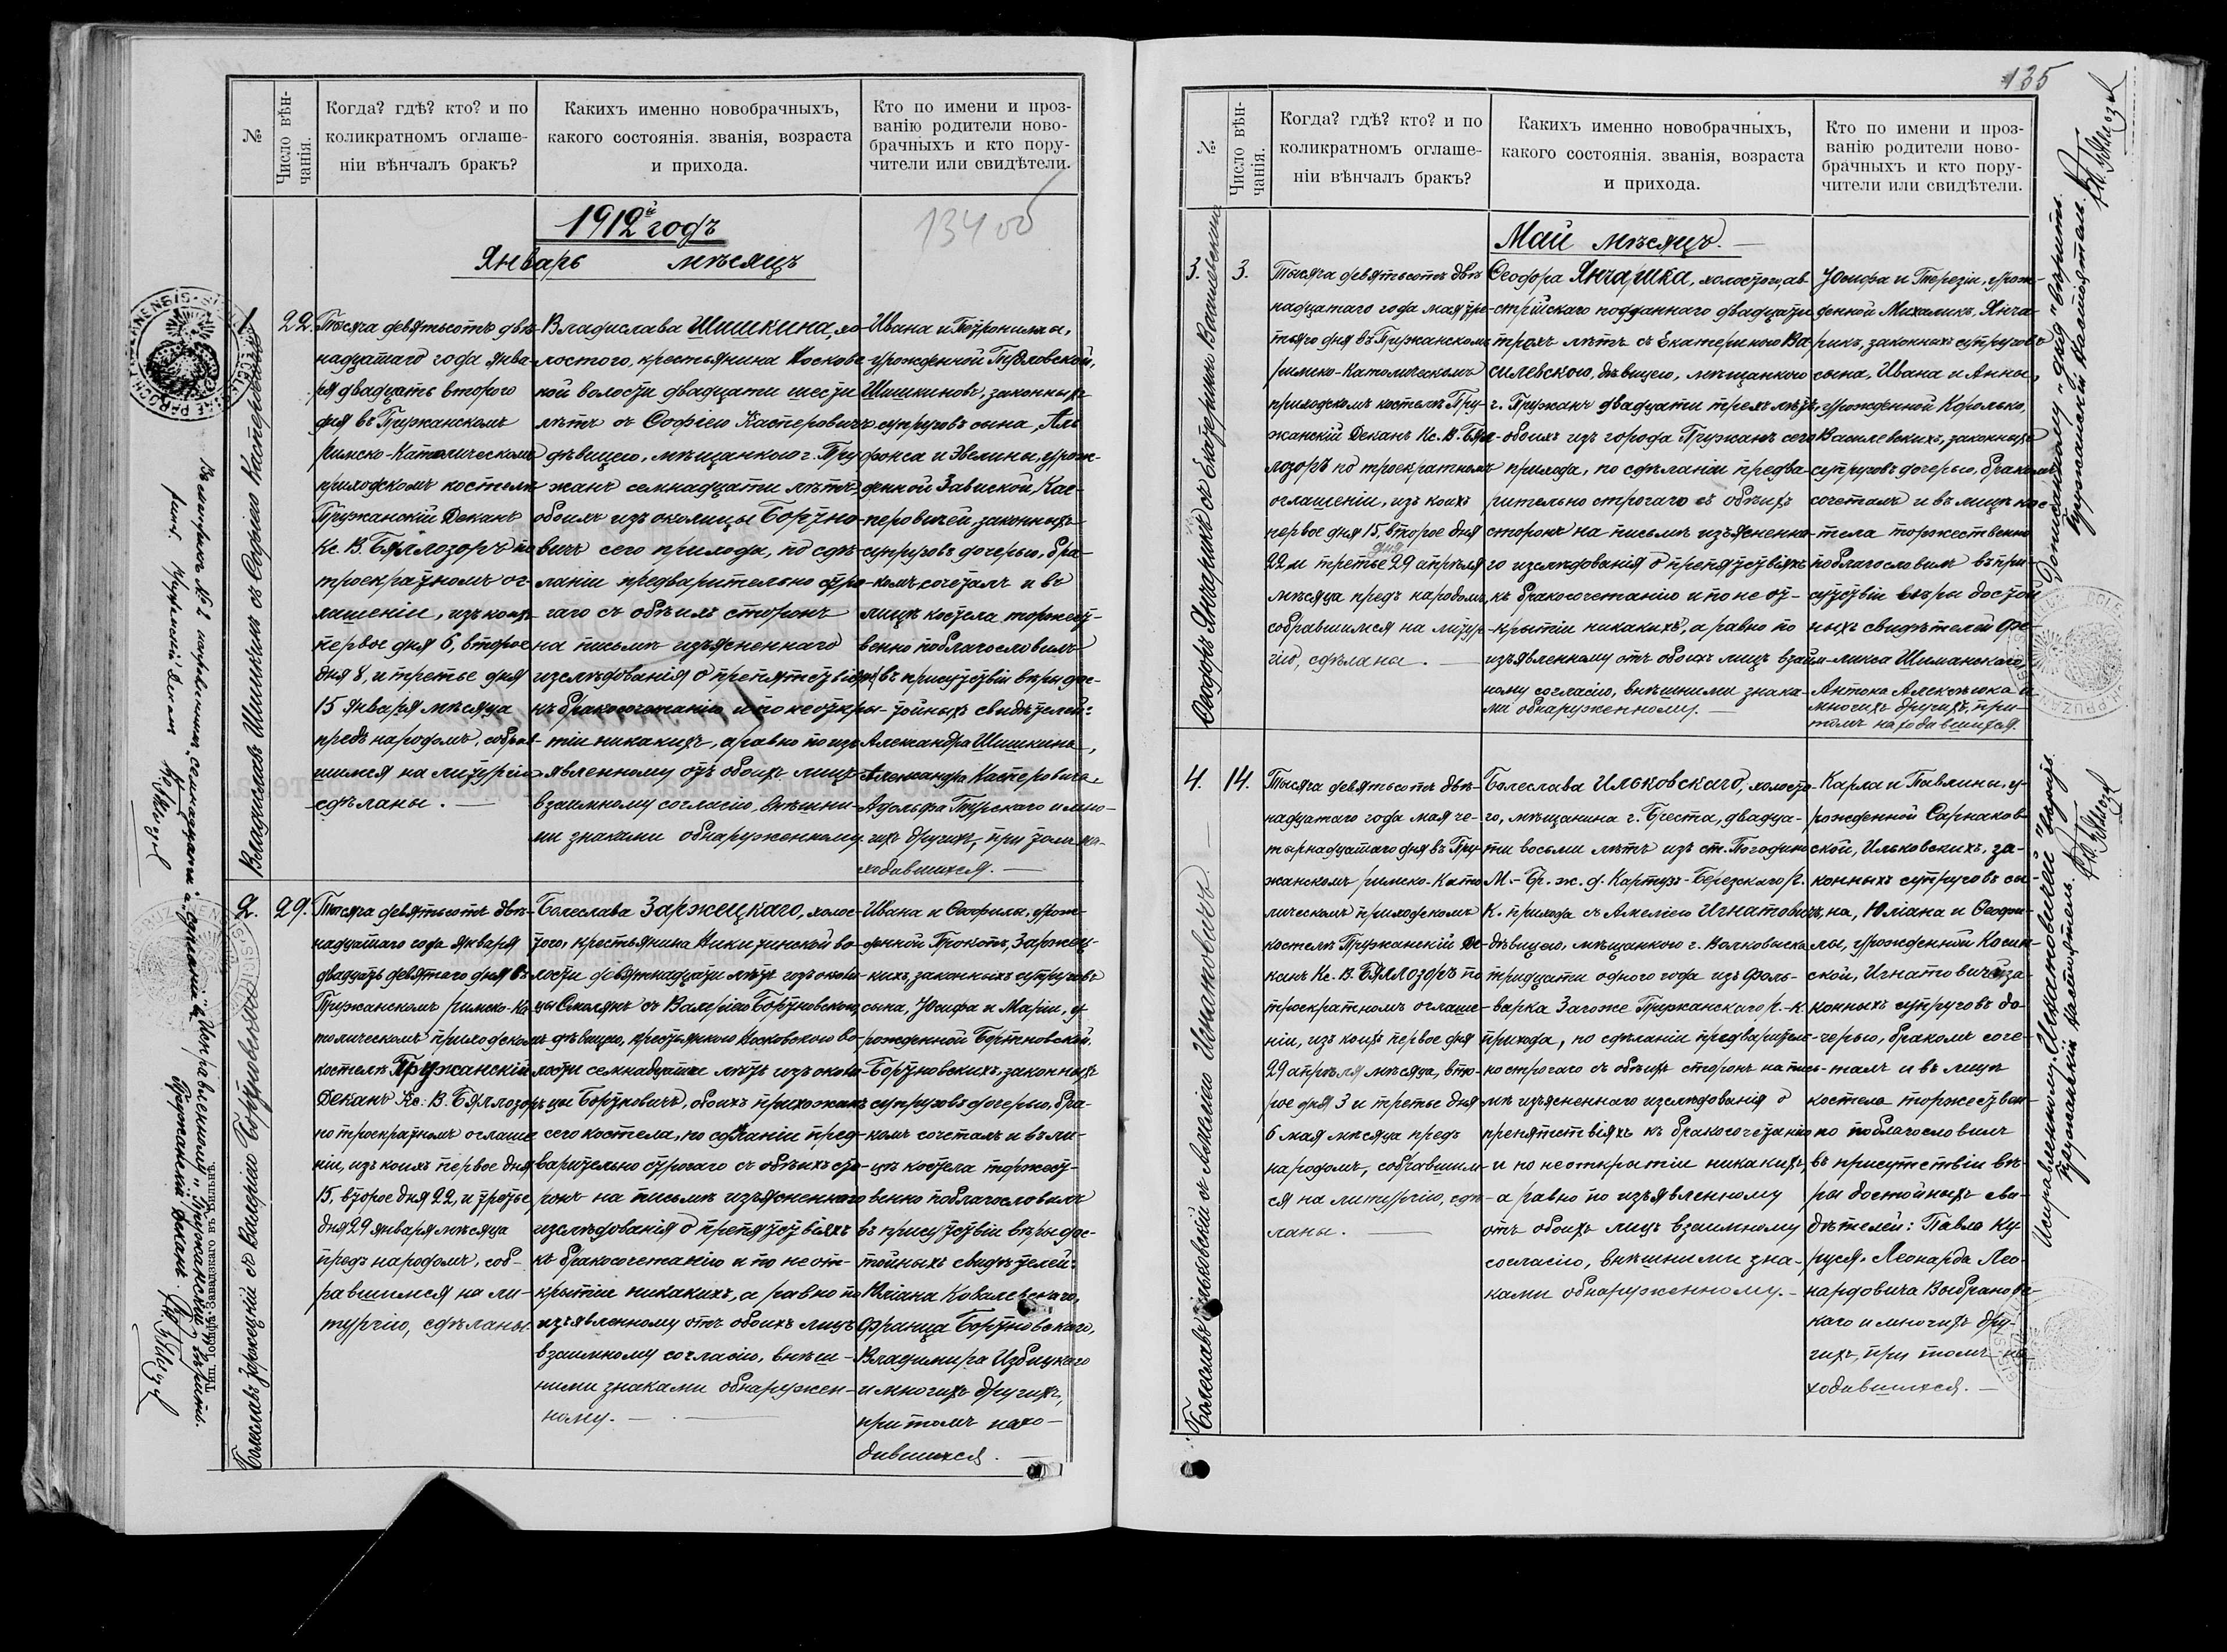 №
Число вѣн-
чанія.
Когда? гдѣ? кто? и по
коликратномъ оглаше-
ніи вѣнчалъ бракъ?
Какихъ именно новобрачныхъ,
какого состоянія. званія, возраста
и прихода.
Кто по имени и проз-
ванію родители ново-
брачныхъ и кто пору-
чители или свидѣтели.
1912й годъ
134 об
Январь мѣсяцъ
1
Владиславъ Шишкинъ съ Софіею Касперовичъ
22.
Тысяча девятьсотъ двѣ-
надцатаго года янва-
ря двадцать второго
дня въ Пружанскомъ
Римско-Католическомъ
приходскомъ костелѣ
Пружанскій Деканъ
Кс. В. Бяллозоръ по
троекратномъ ог-
лашеніи, изъ коихъ
первое дня 6, второе
дня 8, и третье дня
15 января мѣсяца
предъ народомъ, собрав-
шимся на литургію
сдѣланы.
Владислава Шишкина, хо-
лостого, крестьянина Носковс-
кой волости двадцати шести
лѣтъ съ Софіею Касперовичъ
дѣвицею, мѣщанкою г. Пру-
жанъ семнадцати лѣтъ,
обоихъ изъ околицы Бортно-
вичъ сего прихода, по сдѣ-
ланіи предварительно стро-
гаго съ обѣихъ сторонъ
на письмѣ изъясненнаго
изслѣдованія о препятствіяхъ
къ бракосочетанію и по неоткры-
тіи никакихъ, а равно по изъ-
явленному отъ обоихъ лицъ
взаимному согласію, внѣшни-
ми знаками обнаруженному.
Ивана и Петронилы,
урожденной
Шишкиновъ, законныхъ
супруговъ сына, Аль-
фонса и Эвелины, урож-
денной Завиской, Кас-
перовичей, законныхъ
супруговъ дочерью, бра-
комъ сочеталъ и въ
лицѣ костела торжест-
венно поблагословилъ
въ присутствіи вѣры дос-
тойныхъ свидѣтелей:
Александра Шишкина,
Александра Касперовича,
Адольфа Турскаго и мно-
гихъ другихъ, при томъ на-
ходившихся.
2.
Болеславъ Заржецкій съ Валеріею Бортновскою
29.
Тысяча девятьсотъ двѣ-
надцатаго года января
двадцать девятаго дня въ
Пружанскомъ римско-ка-
толическомъ приходскомъ
костелѣ Пружанскій
Деканъ Кс. В. Бяллозоръ
по троекратномъ оглаше-
ніи, изъ коихъ первое дня
15, второе дня 22, и третье
дня 29 января мѣсяца
предъ народомъ, соб-
равшимся на ли-
тургію, сдѣланы.
Болеслава Заржецкаго, холос-
того, крестьянина волости
девятнадцати лѣтъ изъ околи-
цы Смолянъ съ Валеріею Бортновскою,
дѣвицею, крестьянкою Носковской во-
лости семнадцати лѣтъ изъ околи-
цы Бортновичъ, обоихъ прихожанъ
сего костела, по сдѣланіи пред-
варительно строгаго съ обѣихъ сто-
ронъ на письмѣ изъясненнаго
изслѣдованія о препятствіяхъ
къ бракосочетанію и по неот-
крытіи никакихъ, а равно по
изъявленному отъ обоихъ лицъ
взаимному согласію, внѣш-
ними знаками обнаружен-
ному.
Ивана и Теофилы, урож-
денной Прокопъ, Заржец-
кихъ, законныхъ супруговъ
сына, Юсифа и Маріи, у-
рожденной Бортновской,
Бортновскихъ, законныхъ
супруговъ дочерью, бра-
комъ сочеталъ и въ ли-
цѣ костела торжест-
венно поблагословилъ
въ присутствіи вѣры дос-
тойныхъ свидѣтелей:
Юліана Ковалевскаго,
Франца Бортновскаго,
Владимира Избицкаго
и многихъ другихъ,
при томъ нахо-
дившихся.
Въ метрикахъ № 1 исправленнымъ „семнадцати“ а „сдѣланіи“
№ 2 Исправленному „Пружанскій“ вѣрить.
Пружанскій Деканъ
Тип. Іосифа Завадзкаго въ Вильнѣ.
135
№
Число вѣн-
чанія.
Когда? гдѣ? кто? и по
коликратномъ оглаше-
ніи вѣнчалъ бракъ?
Какихъ именно новобрачныхъ,
какого состоянія. званія, возраста
и прихода.
Кто по имени и проз-
ванію родители ново-
брачныхъ и кто пору-
чители или свидѣтели.
Май мѣсяцъ.
3.
Ѳеодоръ Янчарикъ съ Екатериною Василевскою.
3.
Тысяча девятьсотъ двѣ-
надцатаго года мая тре-
тьяго дня въ Пружанскомъ
римско-католическомъ
приходскомъ костелѣ Пру-
жанскій Деканъ Кс. В. Бял-
лозоръ по троекратномъ
оглашеніи, изъ коихъ
первое дня 15, второе дня
22 и третье дня 29 апрѣля
мѣсяца предъ народомъ,
собравшимся на литур-
гію, сдѣлана.
Ѳеодора Янчарика, холостого, ав-
стрійскаго подданнаго двадцати
трехъ лѣтъ съ Екатериною Ва-
силевскою, дѣвицею, мѣщанкою
г. Пружанъ двадцати трехъ лѣтъ,
обоихъ изъ города Пружанъ сего
прихода, по сдѣланіи предва-
рительно строгаго съ обѣихъ
сторонъ на письмѣ изъясненна-
го изслѣдованія о препятствіяхъ
къ бракосочетанію и по не от-
крытіи никакихъ, а равно по
изъявленному отъ обоихъ лицъ взаим-
ному согласію, внѣшними знака-
ми обнаруженному.
Юсифа и Терезіи, урож-
денной Михаликъ, Янча-
рикъ, законныхъ супруговъ
сына, Ивана и Анны,
урожденной Королько,
Василевскихъ, законныхъ
супруговъ дочерью, бракомъ
сочеталъ и въ лицѣ кос-
тела торжественно
поблагословилъ въ при-
сутствіи вѣры достой-
ныхъ свидѣтелей: Фе-
ликса Шиманскаго,
Антона Алексѣюка и
многихъ другихъ, при
томъ находившихся.
4.
Болеславъ Ильковскій съ Амеліею Игнатовичъ.
14.
Тысяча девятьсотъ двѣ-
надцатаго года мая че-
тырнадцатаго дня въ Пру-
жанскомъ римско-като-
лическомъ приходскомъ
костелѣ Пружанскій Де-
канъ Кс. В. Бяллозоръ по
троекратномъ оглаше-
ніи, изъ коихъ первое дня
29 апрѣля мѣсяца, вто-
рое дня 3 и третье дня
6 мая мѣсяца предъ
народомъ, собравшим-
ся на литургію, сдѣ-
ланы.
Болеслава Ильковскаго, холосто-
го, мѣщанина г. Бреста, двадца-
ти восьми лѣтъ изъ ст. Погодино
М.-Бр. ж. д. Картузъ-Березскаго р.
к. прихода съ Амеліею Игнатовичъ,
дѣвицею, мѣщанкою г. Волковыска
тридцати одного года изъ фоль-
варка Загоже Пружанскаго р.-к.
прихода, по сдѣланіи предваритель-
но строгаго съ обѣихъ сторонъ на пись-
мѣ изъясненнаго изслѣдованія о
препятствіяхъ къ бракосочетанію
и по неоткрытіи никакихъ,
а равно по изъявленному
отъ обоихъ лицъ взаимному
согласію, внѣшними зна-
ками обнаруженному.
Карла и Павлины, у-
рожденной Сарнаков-
ской, Ильковскихъ, за-
конныхъ супруговъ сы-
на, Юліана и Теофи-
лы, урожденной Косин-
ской, Игнатовичей за-
конныхъ супруговъ до-
черью, бракомъ соче-
талъ и въ лицѣ
костела торжествен-
но поблагословилъ
въ присутствіи вѣ-
ры достойныхъ сви-
дѣтелей: Павла Ку-
руся, Леонарда Лео-
нардовича Выбранов-
скаго и многихъ дру-
гихъ, при томъ на-
ходившихся.
Дописанному „дня“ вѣрить.
Пружанскій Настоятель.
Исправленному „Игнатовичей“ вѣрить.
Пружанскій Настоятель.